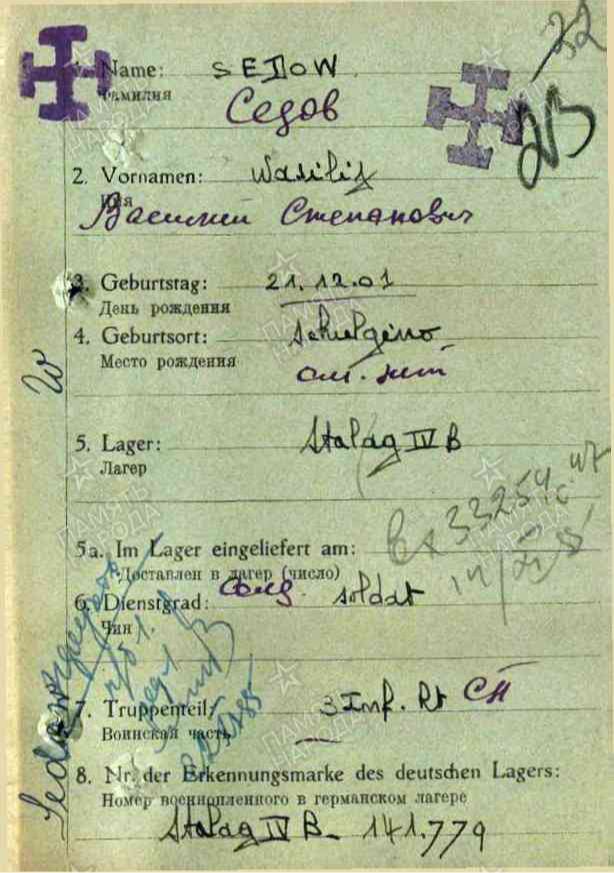 32
1. Name: SEDOW
Фамилия Седов
23
2. Vornamen: Wasilij
Имя
Василий Степанович
3. Geburtstag: 21.12.01
День рождения
4. Geburtsort:
Место рождения
5. Lager: Stalag IV B
Лагер
5a. Im Lager eingeliefert am:
Доставлен в лагер (число)
6. Dienstgrad: солд soldat
Чин
7. Truppenteil: 3 Inf. Rt СП
Воинская часть
8. Nr. der Erkennungsmarke des deutschen Lagers:
Номер военнопленного в германском лагере
Stalag IV B- 141.779
ПАМЯТЬ НАРОДА